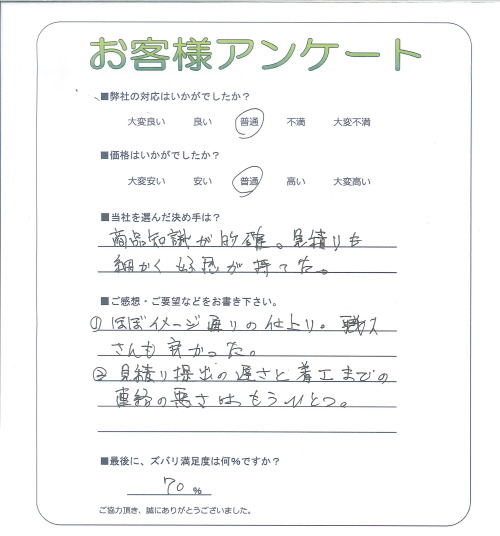 お客様アンケート
■弊社の対応はいかがでしたか？
大変良い 良い 普通 不満 大変不満
■価格はいかがでしたか？
大変安い 安い 普通 高い 大変高い
■当社を選んだ決め手は？
商品知識が的確。見積りも
細かく好感が持てた。
■ご感想・ご要望などをお書き下さい。
① ほぼイメージ通りの仕上り。職人
さんも良かった。
② 見積り提出の遅さと着工までの
連絡の悪さは、もうひとつ。
■最後に、ズバリ満足度は何%ですか？
70 %
ご協力頂き、誠にありがとうございました。